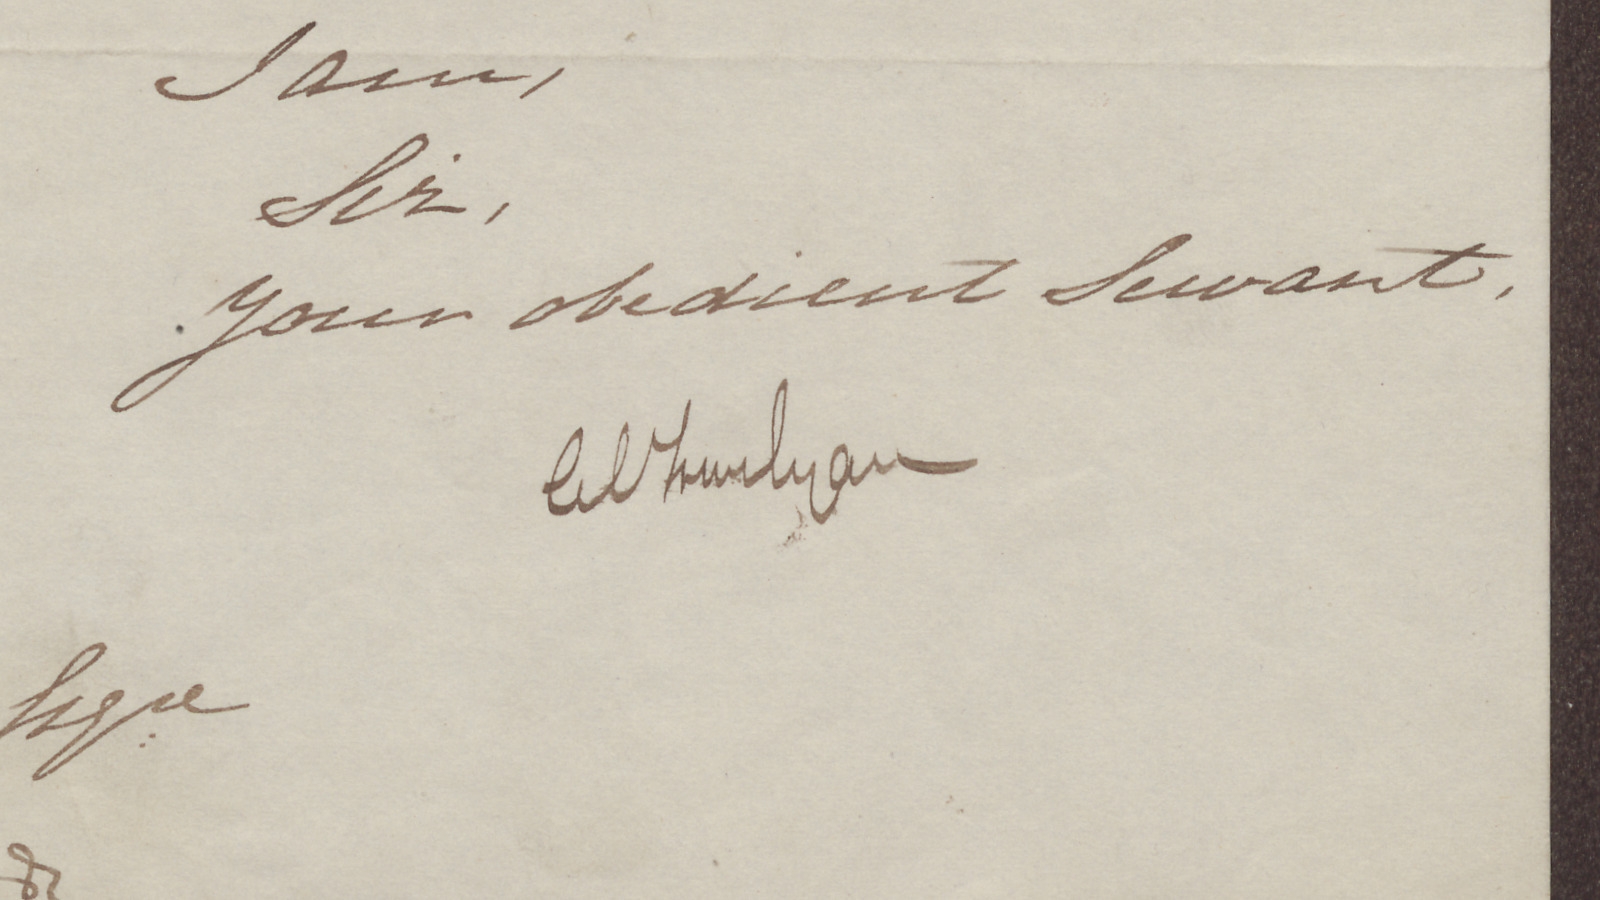 I am,
Sir,
Your obedient Servant,
CE Trevelyan
Esqre
&c